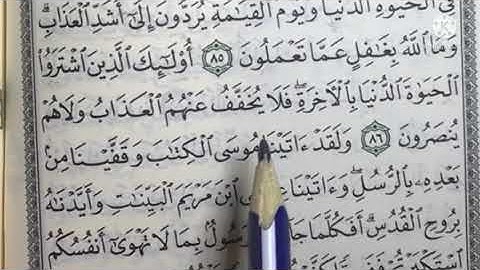 فِي ٱلْحَيَوٰةِ ٱلدُّنْيَا وَيَوْمَ ٱلْقِيَٰمَةِ يُرَدُّونَ إِلَىٰٓ أَشَدِّ ٱلْعَذَابِ
وَمَا ٱللَّهُ بِغَٰفِلٍ عَمَّا تَعْمَلُونَ ٨٥ أُو۟لَٰٓئِكَ ٱلَّذِينَ ٱشْتَرَوُا۟
ٱلْحَيَوٰةَ ٱلدُّنْيَا بِٱلْأَخِرَةِ فَلَا يُخَفَّفُ عَنْهُمُ ٱلْعَذَابُ وَلَاهُمْ
يُنصَرُونَ ٨٦ وَلَقَدْ ءَاتَيْنَا مُوسَى ٱلْكِتَٰبَ وَقَفَّيْنَا مِنۢ
بَعْدِهِۦ بِٱلرُّسُلِ وَءَاتَيْنَا ٱبْنَ مَرْيَمَ ٱلْبَيِّنَٰتِ وَأَيَّدْنَٰهُ
بِرُوحِ ٱلْقُدُسِ أَفَكُلَّمَا رَسُولٌۢ بِمَا لَا تَهْوَىٰٓ أَنفُسُكُمُ